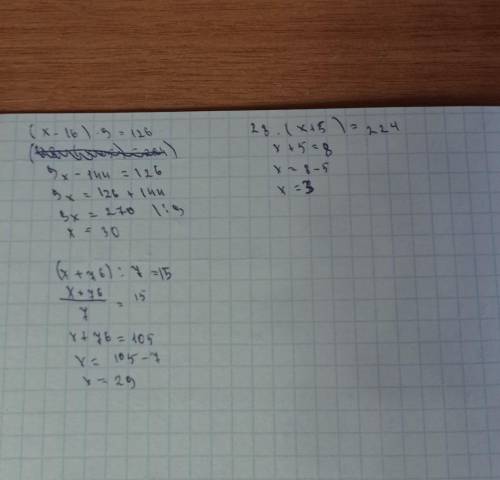 (x - 16) · 9 = 126
9x - 144 = 126
9x = 126 + 144
9x = 270 |:9
x = 30
(x + 76) : 7 = 15
x + 76
7
= 15
x + 76 = 105
x = 105 - 7
x = 29
28 · (x + 5) = 224
x + 5 = 8
x = 8 - 5
x = 3